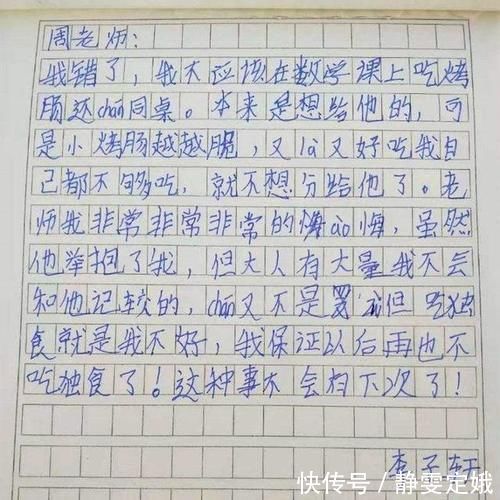 周老师:
我错了，我不应该在数学课上吃烤
肠还chán同桌。本来是想给他的，可
是小烤肠越越脆，又là又好吃我自
己都不够吃，就不想分给他了。老
师我非常非常非常的悔ào悔，虽然
他举抱了我，但大人有大量我不会
和他记较的，chán又不是罗 但吃独
食就是我不好，我保证以后再也不
吃独食了！这种事不会有下次了！
李子轩
快传号／静雯定娥